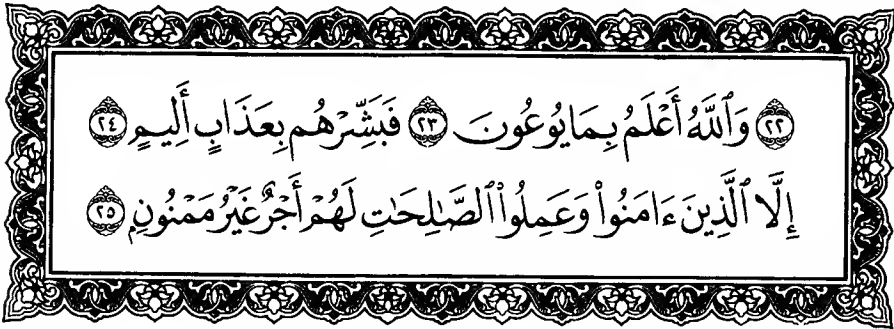 ﴿٢٢﴾ وَٱللَّهُ أَعْلَمُ بِمَا يُوعُونَ ﴿٢٣﴾ فَبَشِّرْهُم بِعَذَابٍ أَلِيمٍ ﴿٢٤﴾
إِلَّا ٱلَّذِينَ ءَامَنُوا۟ وَعَمِلُوا۟ ٱلصَّـٰلِحَـٰتِ لَهُمْ أَجْرٌ غَيْرُ مَمْنُونٍۭ ﴿٢٥﴾